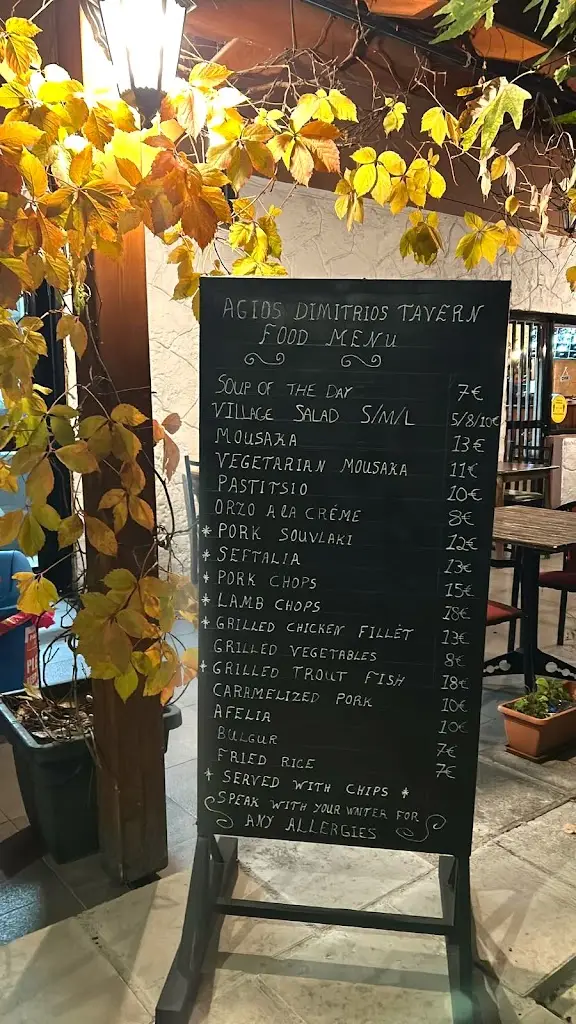 AGIOS DIMITRIOS TAVERN
FOOD MENU
SOUP OF THE DAY 7€
VILLAGE SALAD S/M/L 5/8/10€
MOUSAKA 13€
VEGETARIAN MOUSAKA 11€
PASTITSIO 10€
ORZO A LA CRÈME 8€
* PORK SOUVLAKI 12€
* SEFTALIA 13€
* PORK CHOPS 15€
* LAMB CHOPS 18€
* GRILLED CHICKEN FILLÈT 13€
GRILLED VEGETABLES 8€
* GRILLED TROUT FISH 18€
CARAMELIZED PORK 10€
AFELIA 10€
BULGUR 7€
FRIED RICE 7€
* SERVED WITH CHIPS *
SPEAK WITH YOUR WAITER FOR
ANY ALLERGIES